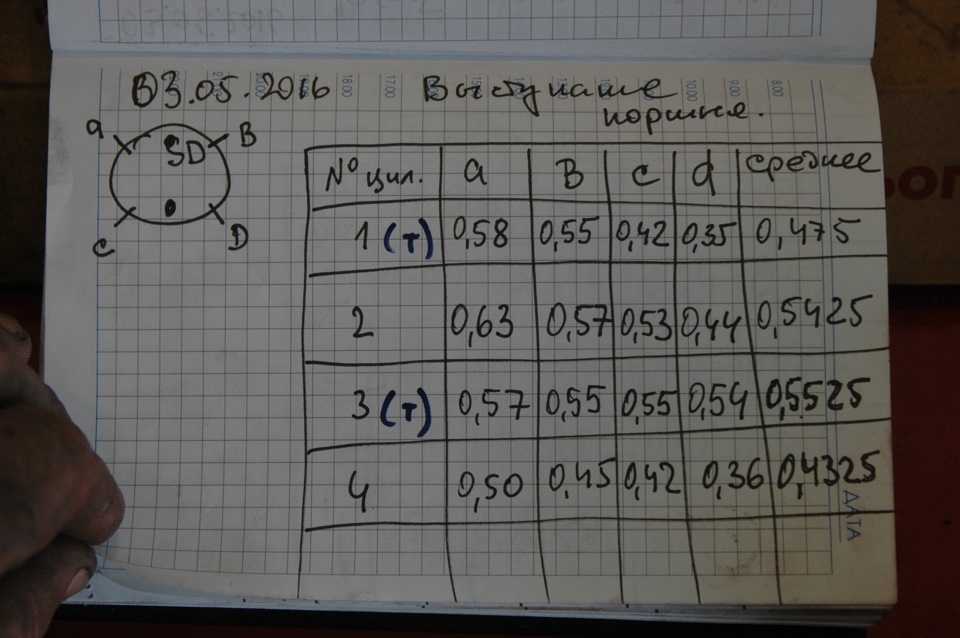 03.05.2016 Выступание
поршня.
a B
SD
C D
№ цил. a B c d среднее
1 (т) 0,58 0,55 0,42 0,35 0,475
2 0,63 0,57 0,53 0,44 0,5425
3 (т) 0,57 0,55 0,55 0,54 0,5525
4 0,50 0,45 0,42 0,36 0,4325
ДАТА
8.00
9.00
10.00
17.00
18.00